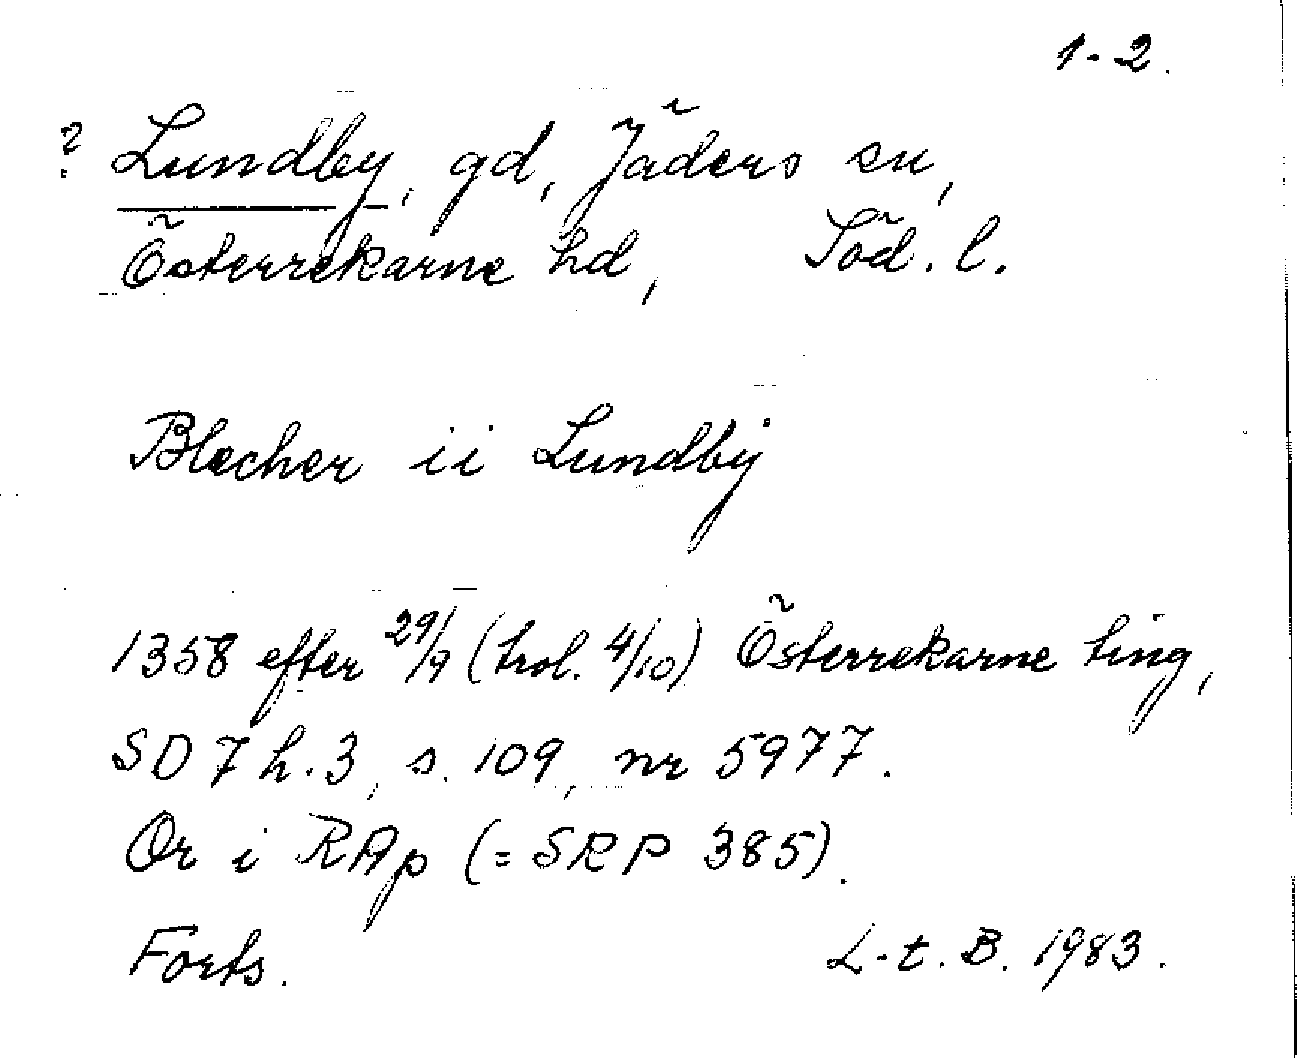 1-2.
? Lundby, gd, Jäders sn,
Österrekarne hd, Söd. l.
Blecher ii Lundbÿ
1358 efter 29/9 (trol. 4/10) Österrekarne ting,
SD 7 h. 3, s. 109, nr 5977.
Or i RAp (= SRP 385).
Forts. L-t. B. 1983.